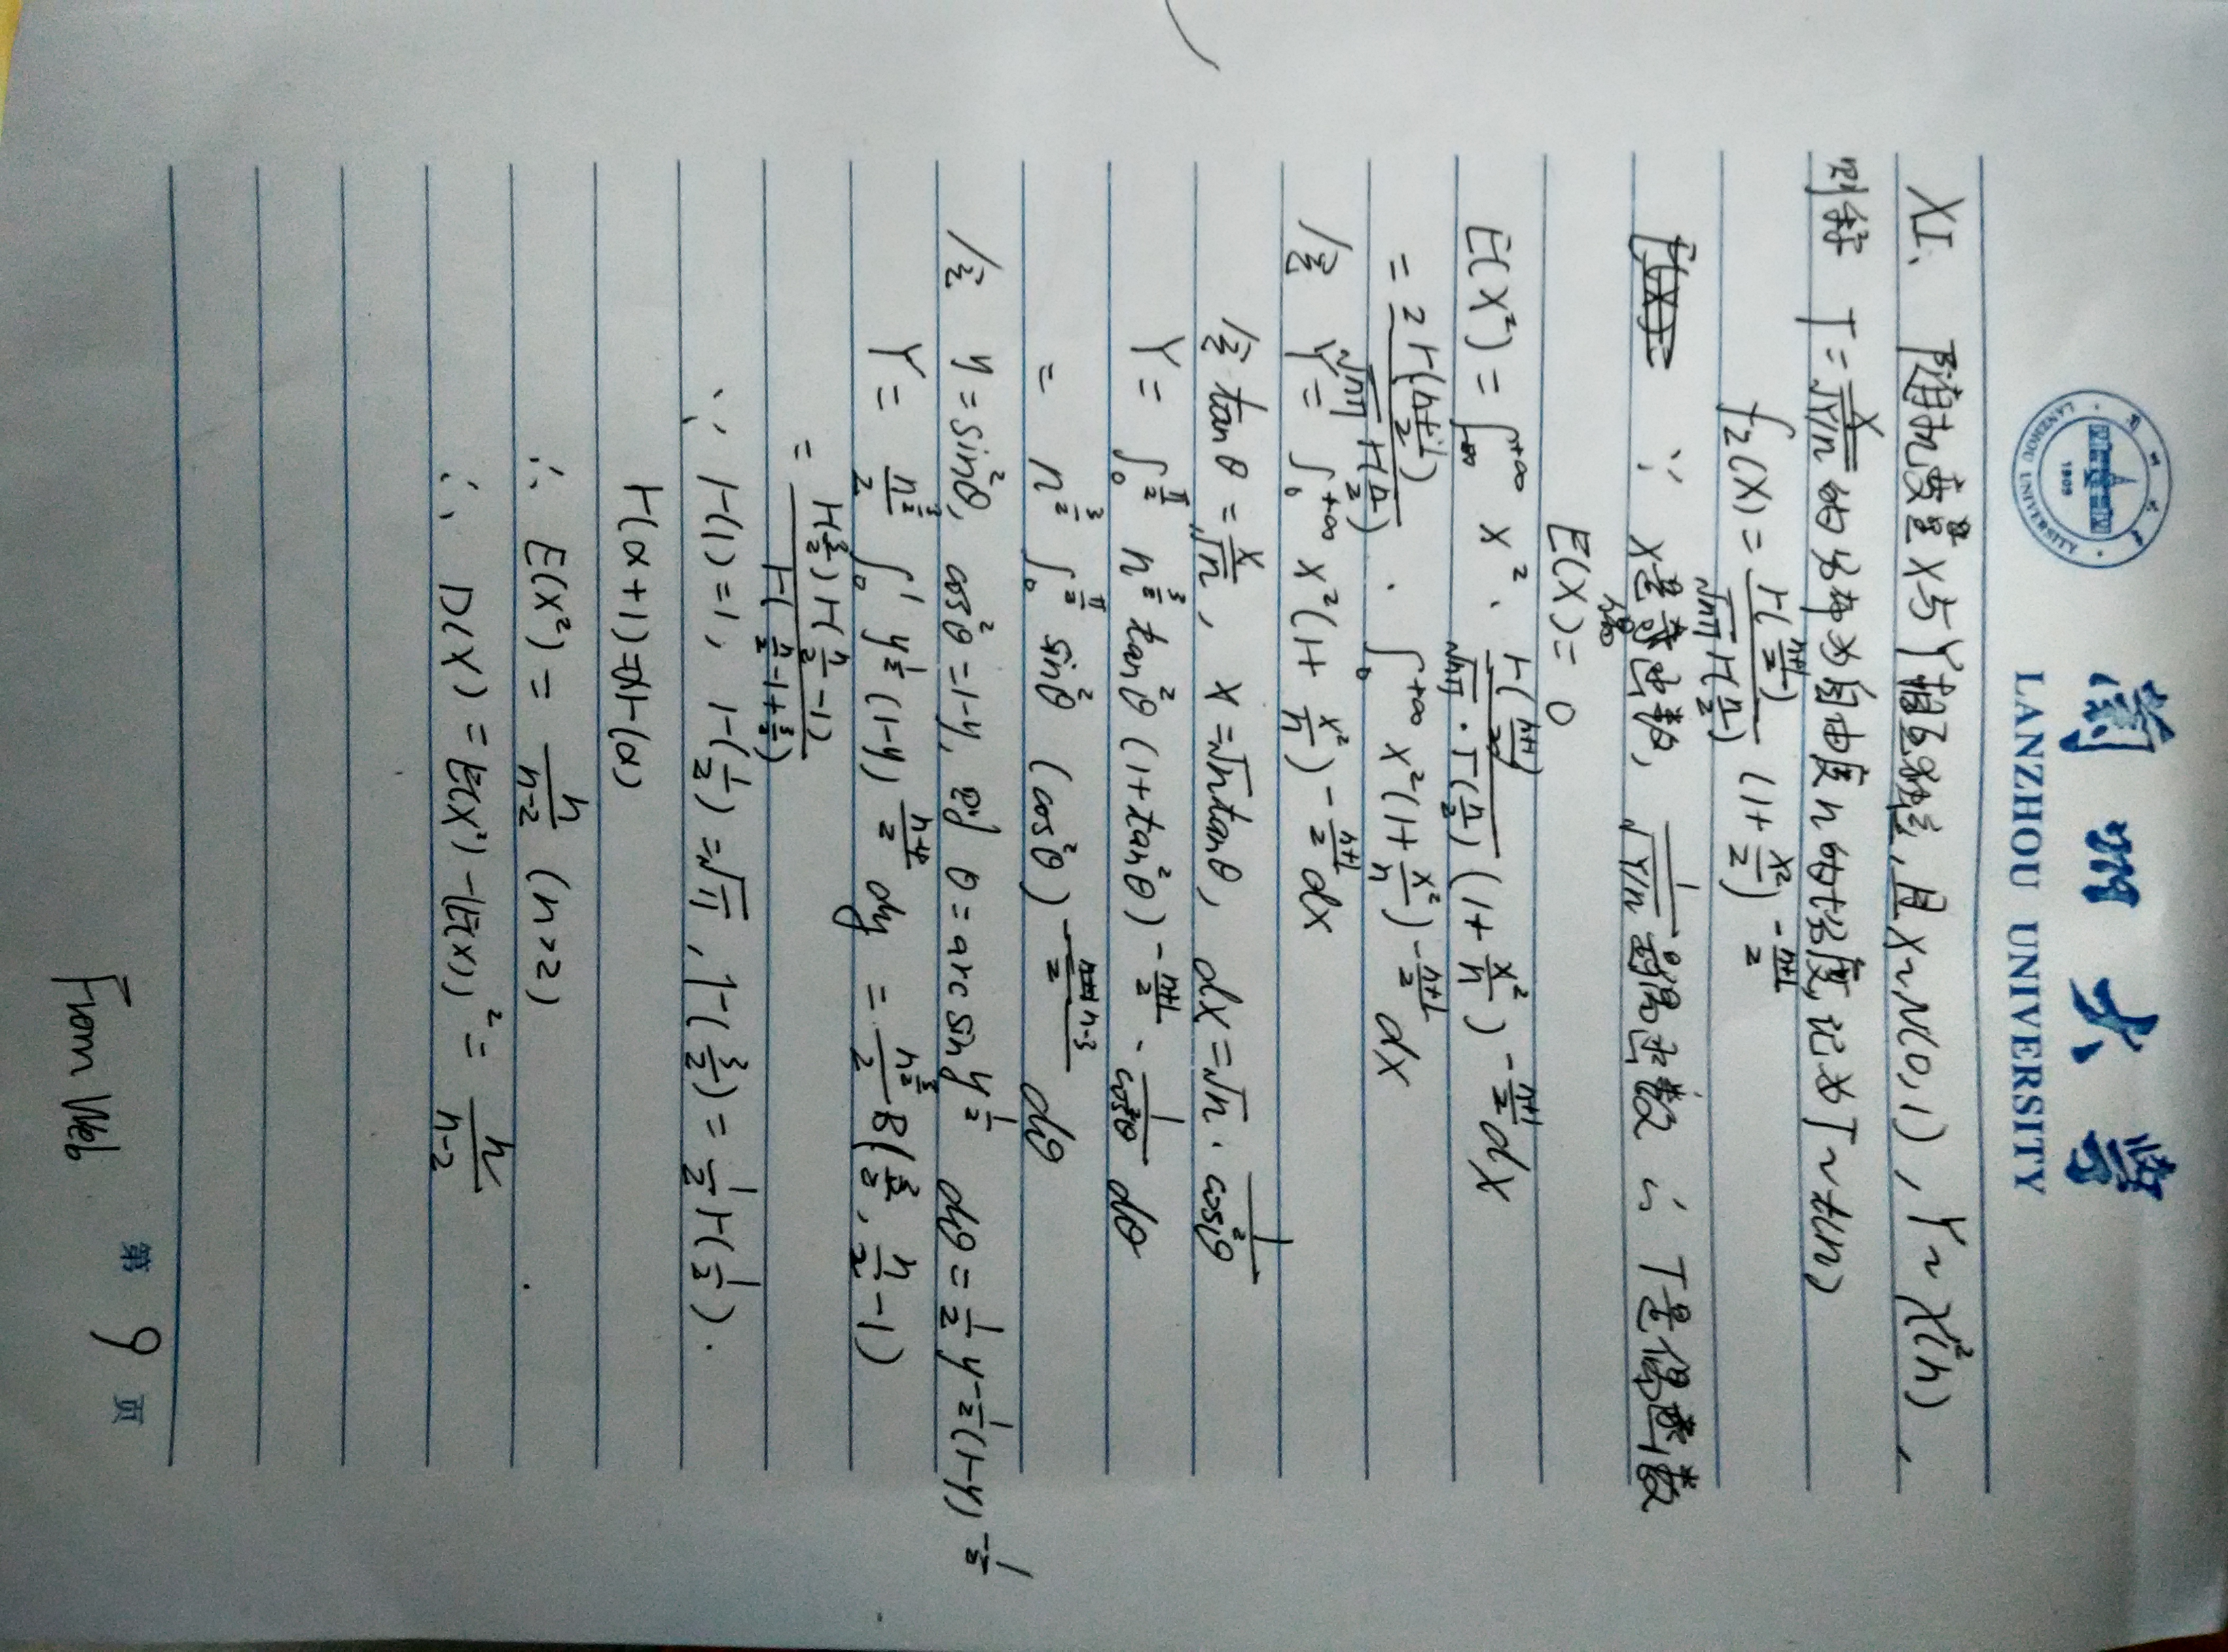 兰州大学
LANZHOU UNIVERSITY
XI、随机变量X与Y相互独立,且X~N(0,1),Y~χ²(n),
则称 T=X/√(Y/n) 的分布为自由度n的t分布,记为T~t(n)
f_Z(x)=Γ((n+1)/2)/(√(nπ) Γ(n/2)) (1+x²/2)^(-(n+1)/2)
∵ X是奇函数, 1/√(Y/n) 是偶函数 ∴ T是偶函数
E(X)=0
E(X²)=∫_{-∞}^{+∞} x²·Γ((n+1)/2)/(√(nπ)·Γ(n/2)) (1+x²/n)^(-(n+1)/2) dx
=2Γ((n+1)/2)/(√(nπ) Γ(n/2))·∫_0^{+∞} x²(1+x²/n)^(-(n+1)/2) dx
令 Y=∫_0^{+∞} x²(1+x²/n)^(-(n+1)/2) dx
令 tanθ=x/√n, x=√n tanθ, dx=√n·1/cos²θ
Y=∫_0^{π/2} n^(3/2) tan²θ(1+tan²θ)^(-(n+1)/2)·1/cos²θ dθ
=n^(3/2) ∫_0^{π/2} sin²θ (cos²θ)^((n-3)/2) dθ
令 y=sin²θ, cos²θ=1-y, 则 θ=arcsin y^(1/2) dθ=1/2 y^(-1/2)(1-y)^(-1/2)
Y=n^(3/2)/2 ∫_0^1 y^(1/2)(1-y)^((n-4)/2) dy = n^(3/2)/2 B(3/2, n/2-1)
=Γ(3/2)Γ(n/2-1)/Γ(n/2-1+3/2)
∵ Γ(1)=1, Γ(1/2)=√π, Γ(3/2)=1/2Γ(1/2).
Γ(α+1)=αΓ(α)
∴ E(X²)=n/(n-2) (n>2)
∴ D(X)=E(X²)-(E(X))²=n/(n-2)
From Web
第 9 页